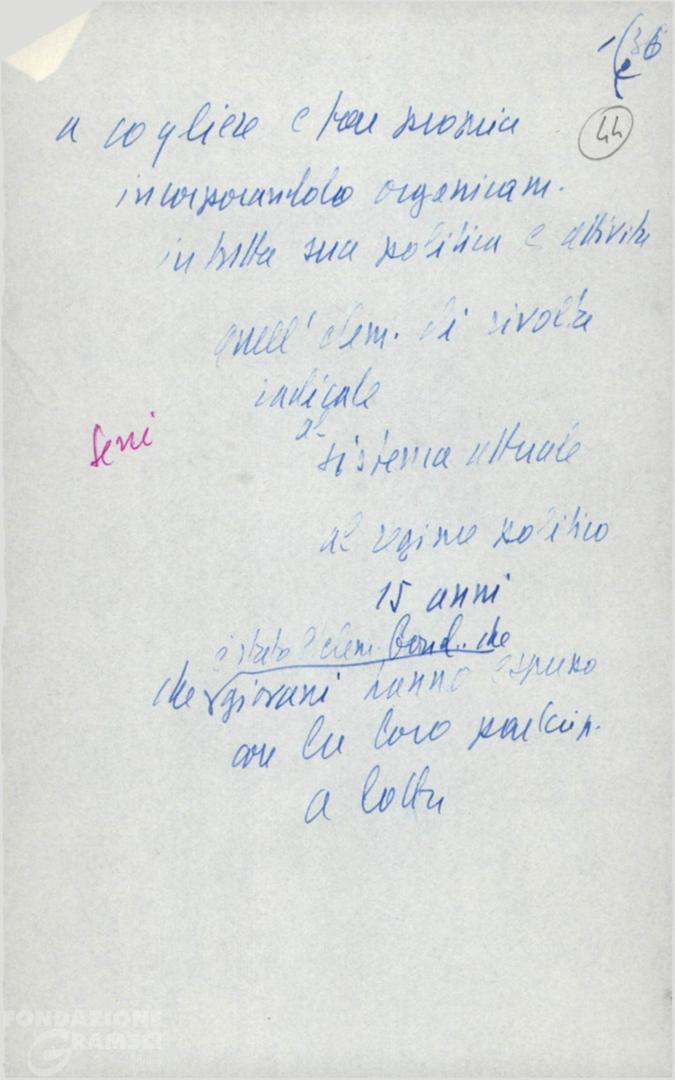 36
44
a cogliere e fare propria
incorporandolo organicam.
in tutta sua politica e attività
quell' elem. di rivolta
radicale
a
sistema attuale
Seni
al regime politico
15 anni
è stato l'elem. fond. che
che giovani hanno espresso
con la loro partecip.
a lotta
FONDAZIONE
GRAMSCI